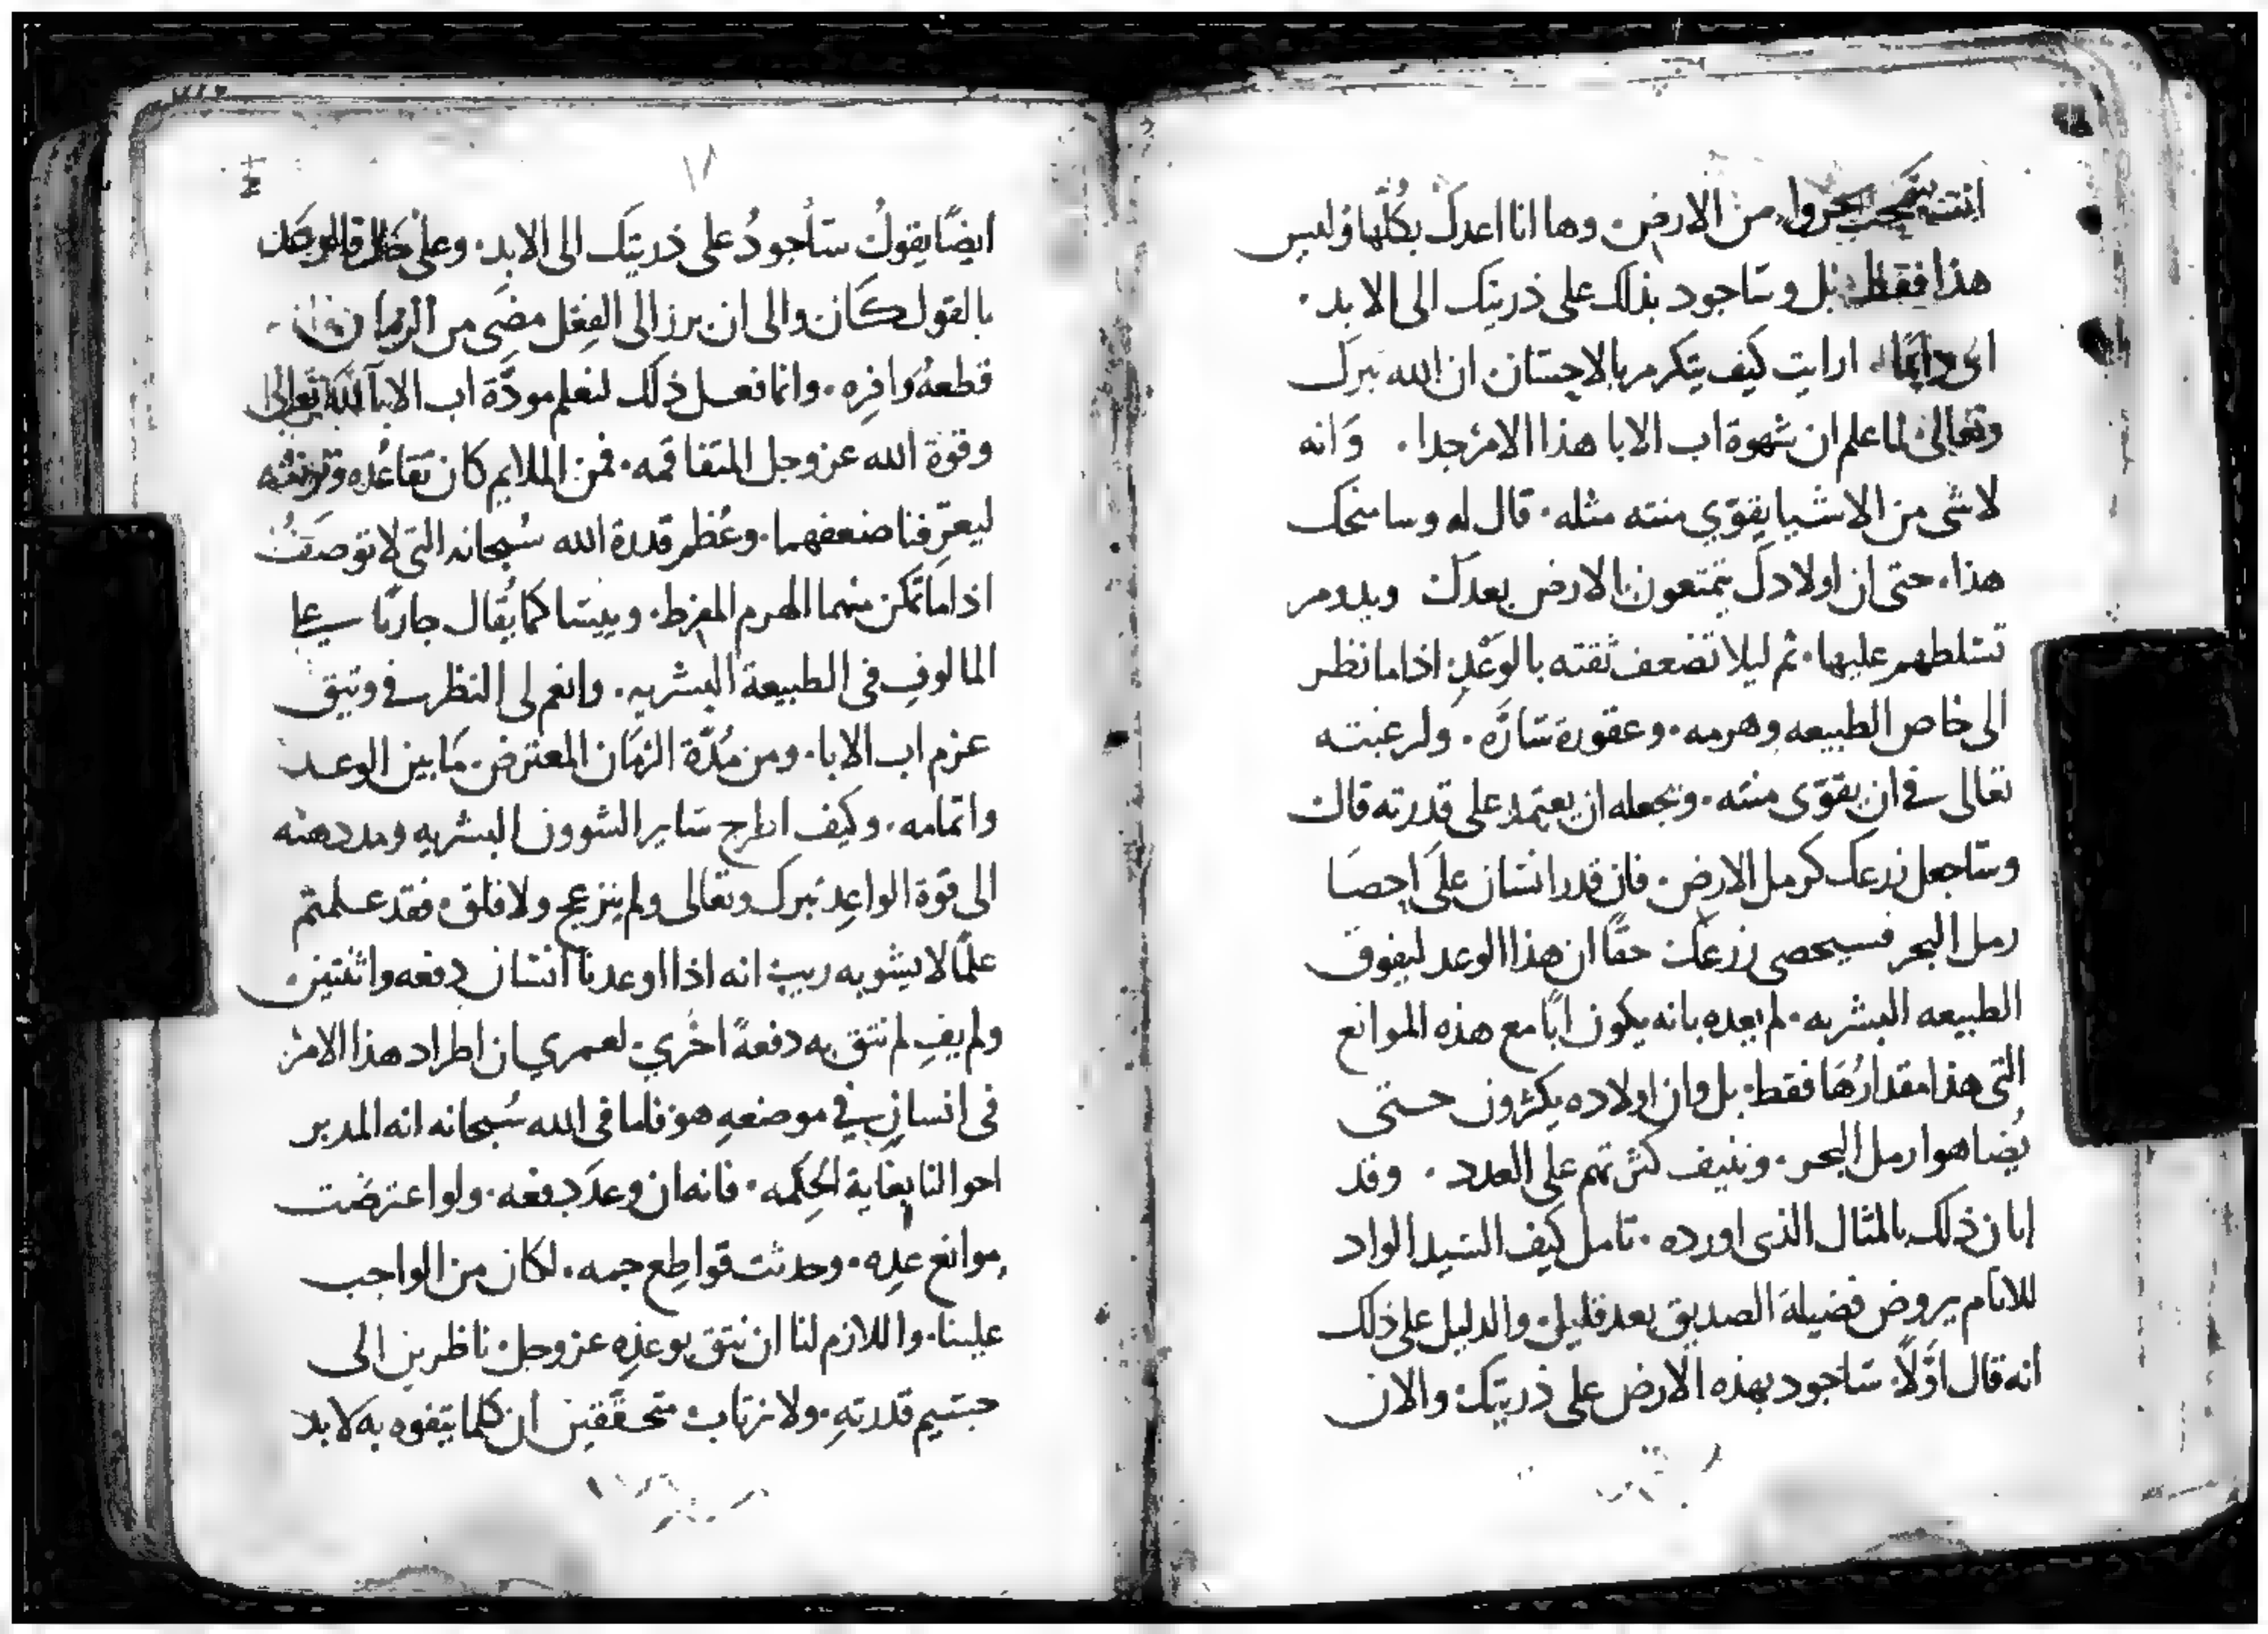 من الارض. وها انا اعدك بكلها وليس
هذا فقط بل وساجود بذلك على ذريتك الى الابد.
اى دايمًا. ارايت كيف يتكرم بالاحسان ان الله تبرك
وتعالى لما علم ان شهوة اب الابا هذا الامر جدا. وانه
لا شى من الاشيا يقوّي منته مثله. قال له وسامنحك
هذا. حتى ان اولادك يتمتعون بالارض بعدك ويدوم
تسلطهم عليها. ثم ليلا تضعف ثقته بالوعد اذا ما نظر
الى خاص الطبيعه وهرمه. وعقورة سَارّه. ولرغبته
تعالى في ان يقوّى منته. ويجعله ان يعتمد على قدرته قال
وساجعل زرعك كرمل الارض. فان قدر انسان على احصَا
رمل البحر فسيحصى زرعك حقًا ان هذا الوعد ليفوق
الطبيعه البشريه. لم يعده بانه يكون ابًا مع هذه الموانع
التى هذا مقدارُهَا فقط. بل وان اولاده يكثرون حتى
يُضاهوا رمل البحر. وتنيف كثرتهم على العدد. وقد
ابان ذلك بالمثال الذى اورده. تامل كيف السيد الواد
للانام يروض فضيلة الصديق بعد قليل والدليل على ذلك
انه قال اوّلًا. ساجود بهذه الارض على ذريتك والان
١٧
ايضًا يقولُ ساجودُ على ذريتك الى الابد. وعلى
بالقول كان والى ان برز الى الفِعْل مضَى من الزمان
قطعهٌ وَافِره. وانما فعل ذلك لنعلم مودّة اب الابا لله تعالى
وقوة الله عز وجل المتفاقمه. فمن الملايم كان تقاعُده
ليعرّفنا ضعفهما. وعُظم قدرة الله سُبحانه التى لا توصَفُ
اذا ما تمكن منهما الهرم المفرط. وييسا كما يُقال جاريًا على
المالوف فى الطبيعة البشريه. وانعم لى النظر في وثيق
عزم اب الابا. ومن مُدّة الزمَان المعترض. مَا بين الوعد
واتمامه. وكيف اطرح سَاير الشوون البشريه ومدد ذهنه
الى قوّة الواعِد تبرك وتعالى ولم ينزعج ولا قلق. فقد علمتم
علمًا لا يشوبه ريب انه اذا اوعدنا انسَان دفعه واثنتين.
ولم يفِ لم نثق به دفعةً اخري. لعمري ان اطراد هذا الامر
فى انسانٍ في موضعهِ هو فاما فى الله سُبحانه انه المدبر
احوالنا بغاية الحِكمه. فانه ان وعدَ دفعه. ولو اعترضت
موانع عدِه. وحدثت قواطِع جمه. لكان من الواجب
علينا. واللازم لنا ان نثق بوعدِه عز وجل ناظرين الى
جسيم قدرتهِ. ولا نرتاب متحققين ان كلما يتفوه به لا بد